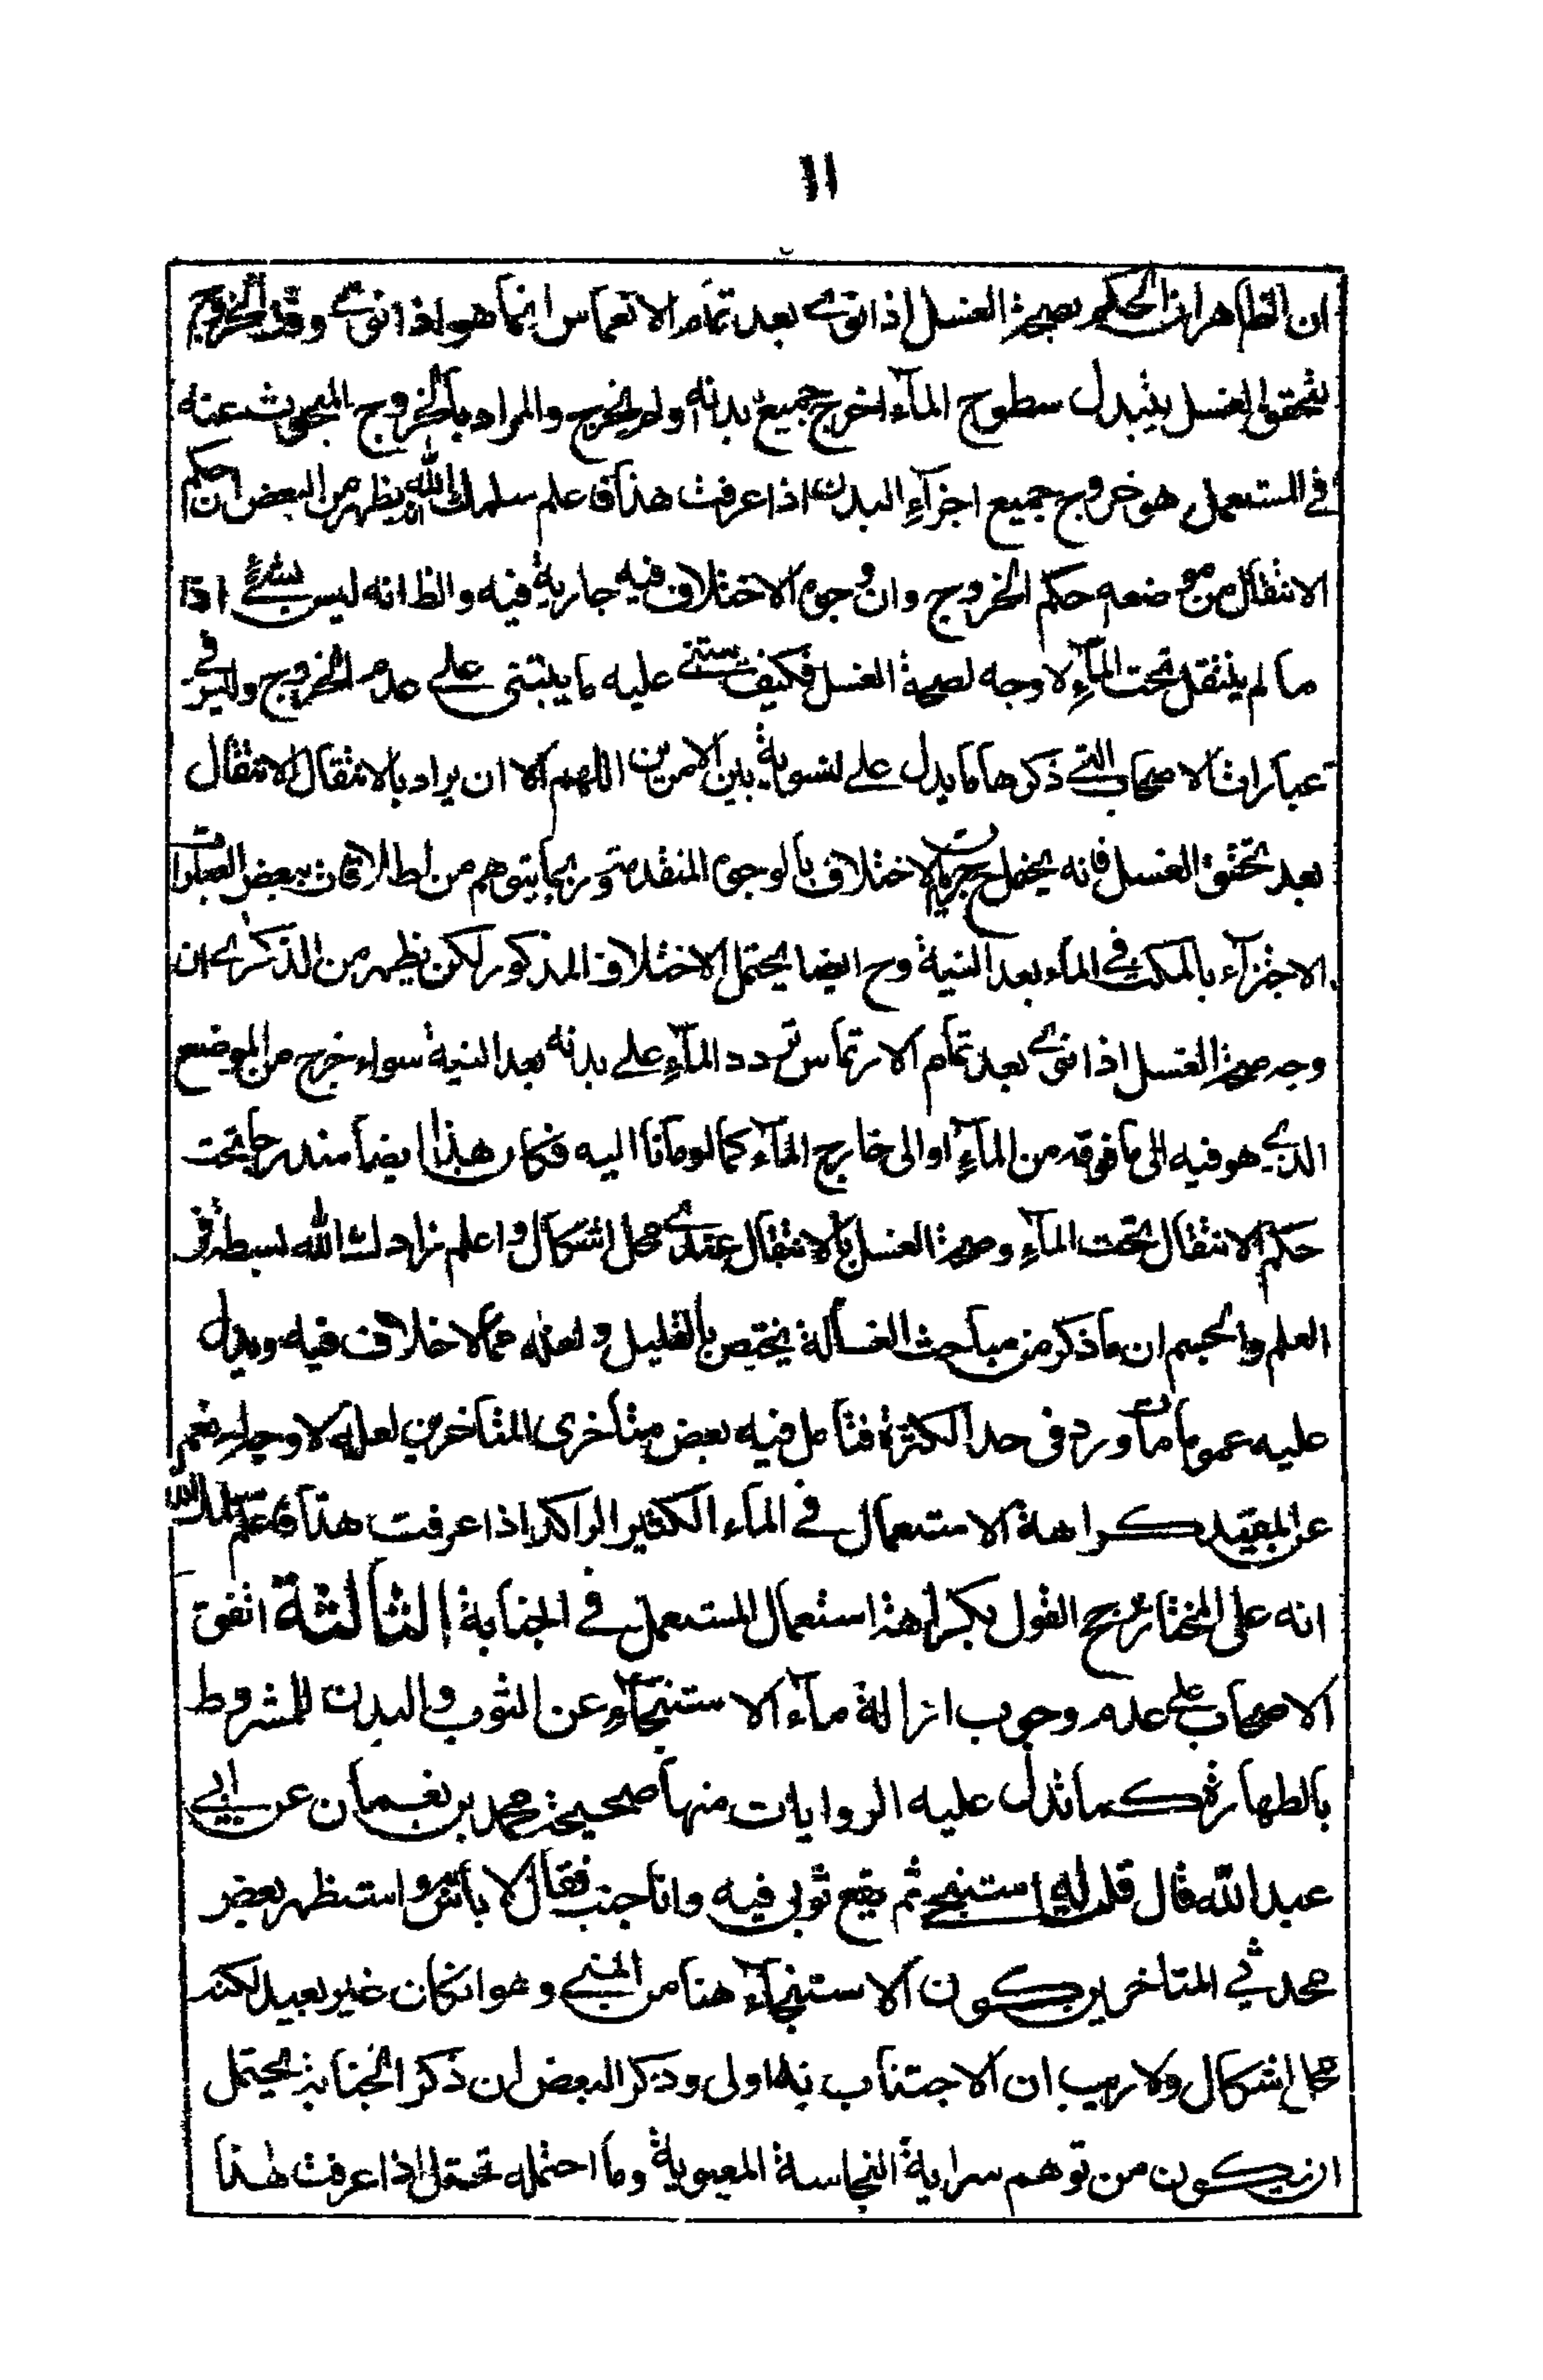 ١١
ان الظاهر ان الحكم بصحة الغسل اذا نوى بعد تمام الانغماس انما هو اذا نوى وقد الخروج
يتحقق الغسل بتبدل سطوح الماء اخرج جميع بدنه اولم يخرج والمراد بالخروج المبحوث عنه
في المستعمل هو خروج جميع اجزاء البدن اذا عرفت هذا فاعلم سلمك الله انه يظهر من البعض ان حكم
الانتقال من موضعه حكم الخروج وان وجوه الاختلاف فيه جارية فيه والظ انه ليس بشئ اذا
ما لم ينتقل تحت الماء لا وجه لصحة الغسل فكيف يبتنى عليه ما يبتنى على عدم الخروج وليس في
عبارات الاصحاب التي ذكرها ما يدل على تسوية بين الامرين اللهم الا ان يراد بالانتقال الانتقال
بعد تحقق الغسل فانه يحتمل ح جريان الاختلاف بالوجوه المتقدمة وربما يتوهم من اطلاقات بعض العبارات
الاجتزاء بالمكث في الماء بعد النية وح ايضا يحتمل الاختلاف المذكور لكن يظهر من الذكرى ان
وجه صحة الغسل اذا نوى بعد تمام الارتماس تردد الماء على بدنه بعد النية سواء خرج من الموضع
الذي هو فيه الى ما فوقه من الماء او الى خارج الماء كما لو مانا اليه فكان هذا ايضا مندرجا تحت
حكم الانتقال تحت الماء وصحة الغسل بالانتقال عندى محل اشكال واعلم زادك الله بسطة في
العلم والجسم ان ما ذكر من مباحث الغسالة يختص بالقليل ولعله مما لا خلاف فيه ويدل
عليه عموما ما ورد في حد الكثرة فتامل فيه بعض متاخرى المتاخرين لعله لا وجه له نعم
عن المفيد كراهة الاستعمال في الماء الكثير الراكد اذا عرفت هذا فاعلم سلمك الله
انه على المختار يرجح القول بكراهة استعمال المستعمل في الجنابة الثالثة اتفق
الاصحاب على عدم وجوب ازالة ماء الاستنجاء عن الثوب والبدن للمشروط
بالطهارة كما تدل عليه الروايات منها صحيحة محمد بن نعمان عن ابي
عبد الله قال قلت له استنجى ثم يقع ثوبى فيه وانا جنب فقال لا باس واستظهر بعض
محدثي المتاخرين كون الاستنجاء هنا من المني وهو ان كان غير بعيد لكنه
محل اشكال ولا ريب ان الاجتناب به اولى وذكر البعض ان ذكر الجنابة يحتمل
ان يكون من توهم سراية النجاسة المعنوية وما احتمله محتمل اذا عرفت هذا